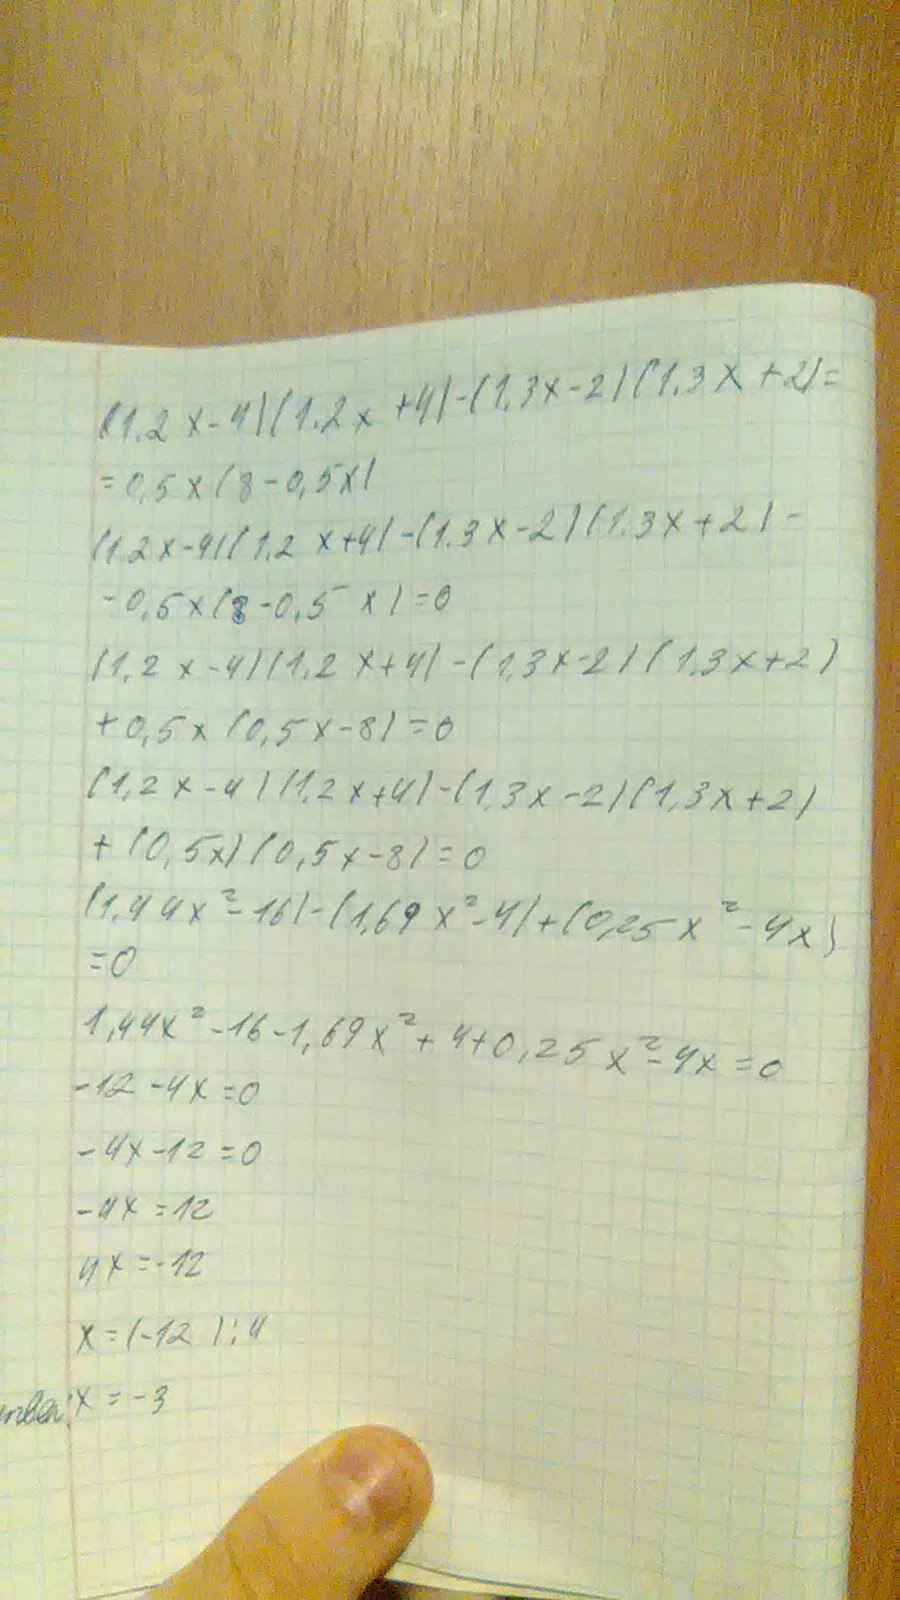 (1.2x-4)(1.2x+4)-(1.3x-2)(1.3x+2)=
=0,5x(8-0,5x)
(1.2x-4)(1.2x+4)-(1.3x-2)(1.3x+2)-
-0,5x(8-0,5x)=0
(1,2x-4)(1.2x+4)-(1,3x-2)(1.3x+2)
+0,5x(0,5x-8)=0
(1,2x-4)(1.2x+4)-(1,3x-2)(1,3x+2)
+(0,5x)(0,5x-8)=0
(1,44x²-16)-(1,69x²-4)+(0,25x²-4x)
=0
1,44x²-16-1,69x²+4+0,25x²-4x=0
-12-4x=0
-4x-12=0
-4x=12
4x=-12
x=(-12):4
x=-3